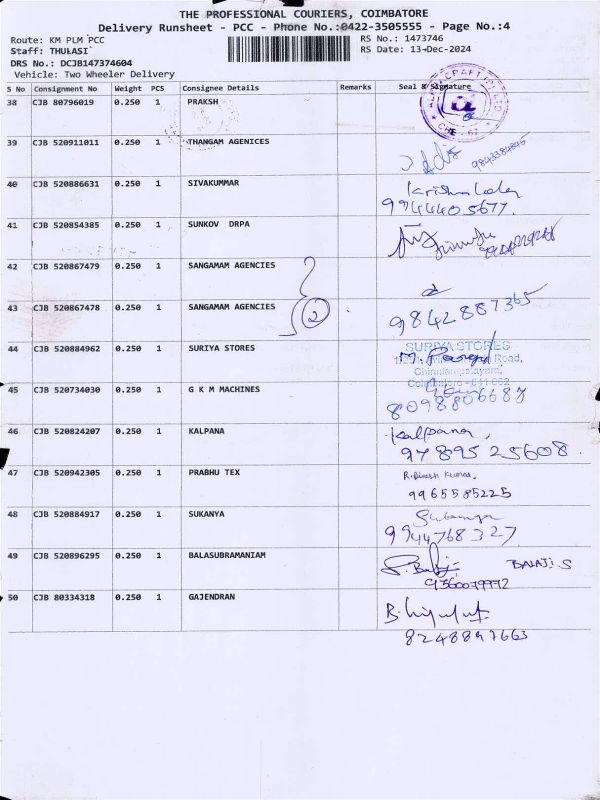 THE PROFESSIONAL COURIERS, COIMBATORE
Delivery Runsheet - PCC - Phone No.:0422-3505555 - Page No.:4
Route: KM PLM PCC RS No.: 1473746
Staff: THULASI RS Date: 13-Dec-2024
DRS No.: DCJB147374604
Vehicle: Two Wheeler Delivery
S No Consignment No Weight PCS Consignee Details Remarks Seal & Signature
38 CJB 80796019 0.250 1 PRAKSH
39 CJB 520911011 0.250 1 THANGAM AGENICES
9843384845
40 CJB 520886631 0.250 1 SIVAKUMMAR
9944405677
41 CJB 520854385 0.250 1 SUNKOV DRPA
42 CJB 520867479 0.250 1 SANGAMAM AGENCIES
43 CJB 520867478 0.250 1 SANGAMAM AGENCIES 2 9842887365
44 CJB 520884962 0.250 1 SURIYA STORES SURIYA STORES
Road,
45 CJB 520734030 0.250 1 G K M MACHINES
8098806687
46 CJB 520824207 0.250 1 KALPANA Kalpana,
9789525608.
47 CJB 520942305 0.250 1 PRABHU TEX R. Dinesh Kumar,
9965585225
48 CJB 520884917 0.250 1 SUKANYA Sukanya
9944768327
49 CJB 520896295 0.250 1 BALASUBRAMANIAM BALAJI.S
50 CJB 80334318 0.250 1 GAJENDRAN
8248897663